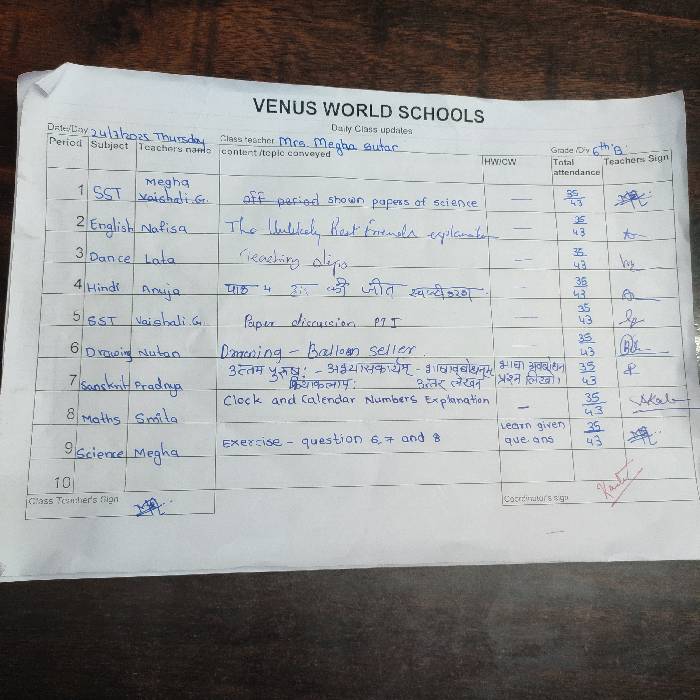 VENUS WORLD SCHOOLS
Daily Class updates
Date/Day 24/7/2025 Thursday Class teacher Mrs. Megha Sutar Grade /Div 6th 'B'
Period Subject Teachers name content /topic conveyed HW/CW Total attendance Teachers Sign
1 SST Megha Vaishali.G. off period shown papers of science — 35/43
2 English Nafisa The Unlikely Best Friends explanation — 35/43
3 Dance Lata Teaching steps — 35/43
4 Hindi Anuja पाठ 4 हार की जीत स्पष्टीकरण. - 35/43
5 SST Vaishali.G. Paper discussion PTI — 35/43
6 Drawing Nutan Drawing – Balloon seller. — 35/43
7 Sanskrit Pradnya उत्तम पुरुष: - अभ्यासकार्यम् - भाषावबोधनम् भाषा अवबोधन 35/43
क्रियाकलाप: उत्तर लेखन प्रश्न लिखो।
8 Maths Smita Clock and Calendar Numbers Explanation — 35/43
9 Science Megha Exercise - question 6,7 and 8 Learn given que.ans 35/43
10
Class Teacher's Sign Coordinator's sign